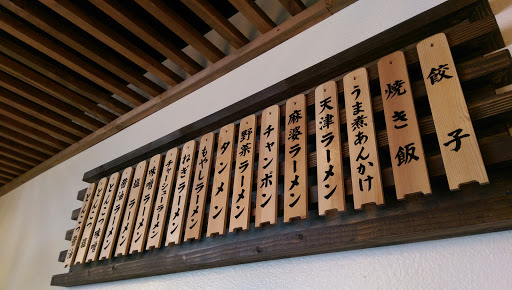 餃子
焼き飯
うま煮あんかけ
天津ラーメン
麻婆ラーメン
チャンポン
野菜ラーメン
タンメン
もやしラーメン
ねぎラーメン
チャーシューラーメン
味噌ラーメン
塩ラーメン
醤油ラーメン